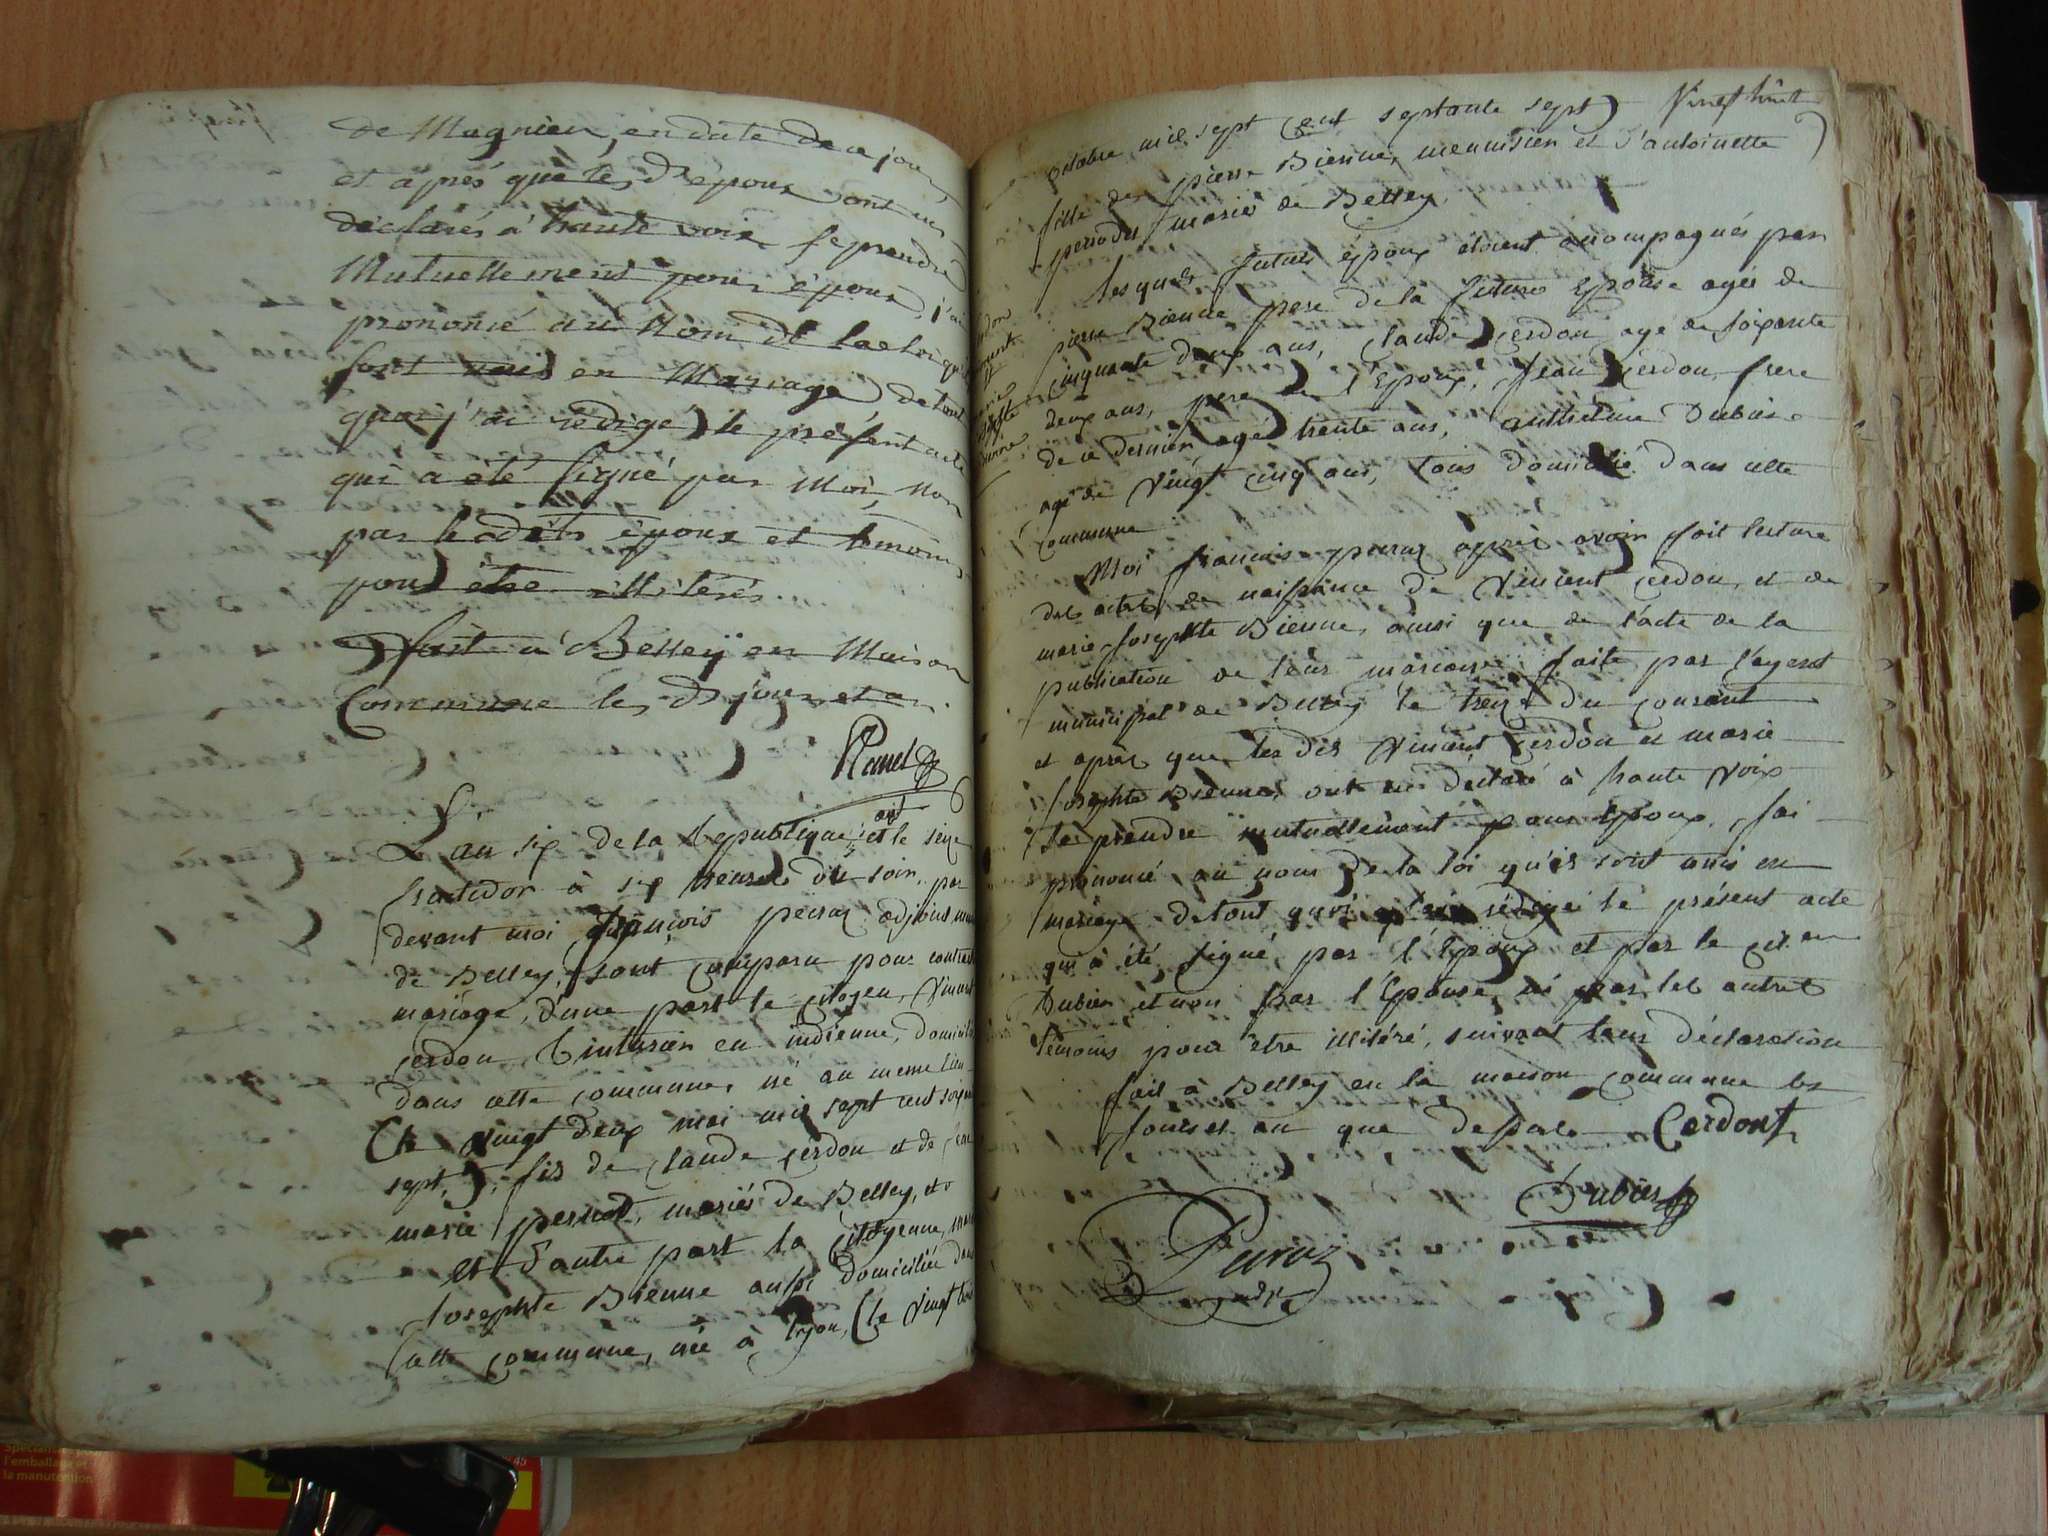 de Magnieu, en date de ce jour
et après que les ds époux ont eus
déclarés à haute voix se prendre
Mutuellement pour époux j'ai
prononcé au Nom de la loi qu'ils
sont unis en Mariage de tout
quoi j'ai rédigé le présent acte
qui a été signé par Moi, Non
par les dits époux et témoins
pour être illiterés
fait à Belleÿ en Maison
Commune les ds jour et an
L'an six de la République, et le seize
fructidor à six heures du soir, par
devant moi françois peiraz adjoint
de Belley, sont comparu pour contracter
mariage, d'une part le citoyen Vincent
Cerdon, teinturier en indienne, domicilié
dans cette commune, né au meme lieu
(le vingt deux mai mil sept cent soixante
sept), fils de Claude Cerdon et de
marie pernod, mariés de Belley,
et d'autre part la citoyenne, marie
Josephte Bienne aussi domiciliée dans
cette commune, née à Lyon, (le vingt huit
Vingt huit
octobre mil sept cent septante sept)
fille de pierre Bienne, menuisier et d'antoinette
mariés de Belley.
Lesquels futurs époux étoient accompagnés par
pierre Bienne pere de la future Epouse agé de
cinquante deux ans, Claude Cerdon agé de soixante
deux ans, pere de l'Epoux, Jean Cerdon frere
de ce dernier, agé trente ans, anthelme Dubier
agé de vingt cinq ans, tous domicilié dans cette
Commune
Moi francois peiraz après avoir fait lecture
des actes de naissance de Vincent Cerdon, et de
marie Josephte Bienne, ainsi que de l'acte de la
publication de leur mariage faite par l'agent
municipal de Belley le treize du courant
et après que les dis Vincent Cerdon et marie
Josephte Bienne, ont eu déclaré à haute Voix
se prendre mutuellement pour Epoux, j'ai
prononcé au nom de la loi qu'ils sont unis en
mariage de tout quoi j'ai rédigé le présent acte
qui a été signé par l'Epoux et par le cit.en
Dubier et non par l'Epouse, ni par les autres
témoins pour être illitéré, suivant leur déclaration
fait à Belley en la maison commune les
jour et an que dessus Cerdont
Dubier
Peiraz
adjt